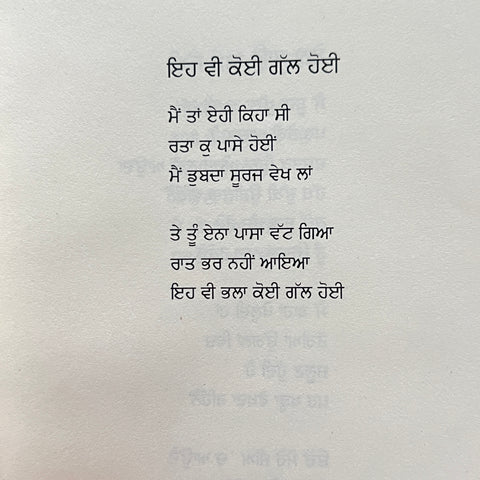 ਇਹ ਵੀ ਕੋਈ ਗੱਲ ਹੋਈ
ਮੈਂ ਤਾਂ ਏਹੀ ਕਿਹਾ ਸੀ
ਰਤਾ ਕੁ ਪਾਸੇ ਹੋਈਂ
ਮੈਂ ਡੁਬਦਾ ਸੂਰਜ ਵੇਖ ਲਾਂ
ਤੇ ਤੂੰ ਏਨਾ ਪਾਸਾ ਵੱਟ ਗਿਆ
ਰਾਤ ਭਰ ਨਹੀਂ ਆਇਆ
ਇਹ ਵੀ ਭਲਾ ਕੋਈ ਗੱਲ ਹੋਈ